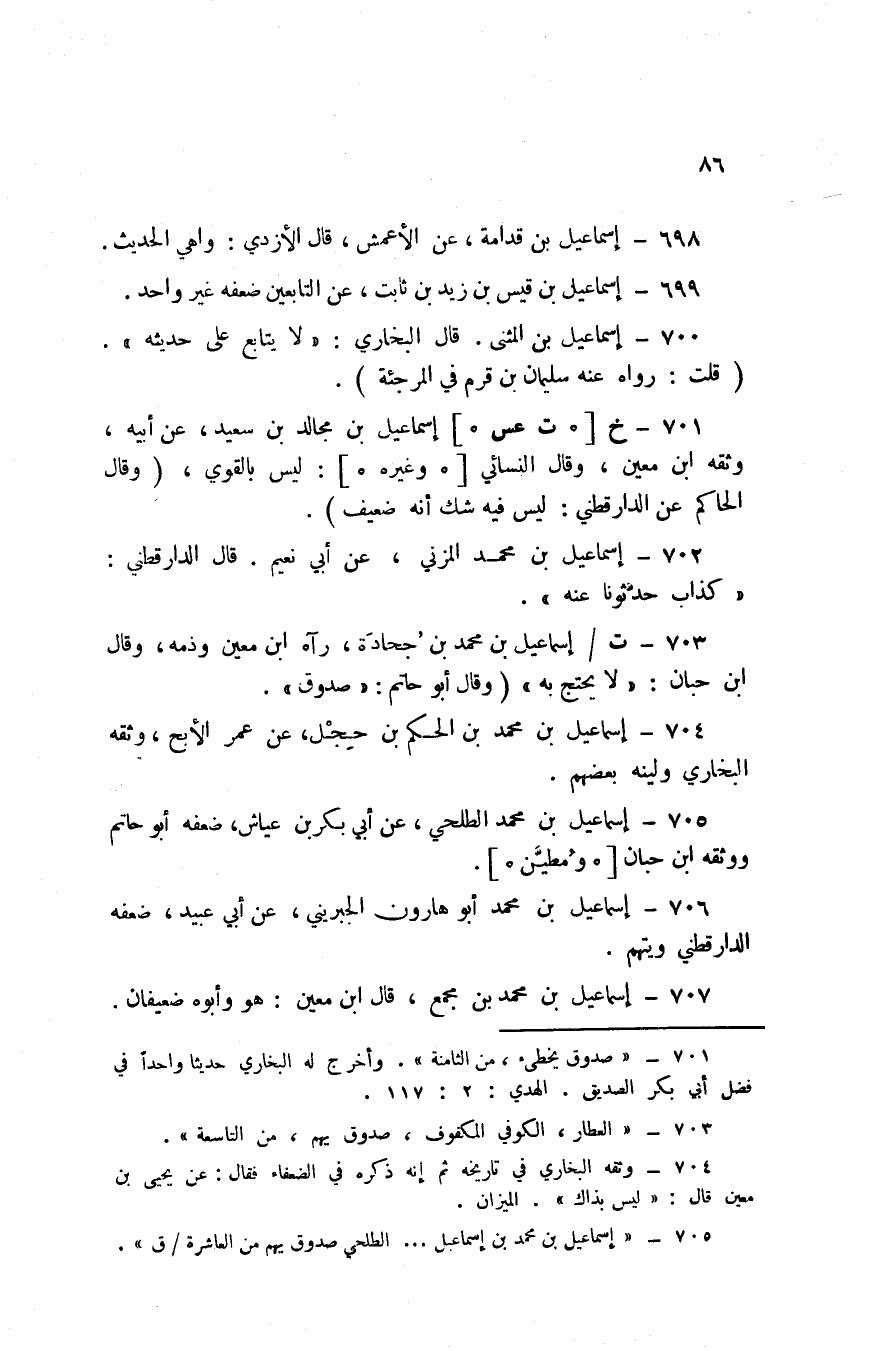 ٨٦
٦٩٨ – إسماعيل بن قدامة ، عن الأعمش ، قال الأزدي : واهي الحديث .
٦٩٩ – إسماعيل بن قيس بن زيد بن ثابت ، عن التابعين ضعفه غير واحد .
٧٠٠ – إسماعيل بن المثنى . قال البخاري : « لا يتابع على حديثه » .
( قلت : رواه عنه سليمان بن قرم في المرجئة ) .
٧٠١ – خ [ ٥ ت عس ٥ ] إسماعيل بن مجالد بن سعيد ، عن أبيه ،
وثقه ابن معين ، وقال النسائي [ ٥ وغيره ٥ ] : ليس بالقوي ، ( وقال
الحاكم عن الدارقطني : ليس فيه شك أنه ضعيف ) .
٧٠٢ – إسماعيل بن محمد المزني ، عن أبي نعيم . قال الدارقطني :
« كذاب حدثونا عنه » .
٧٠٣ – ت / إسماعيل بن محمد بن جُحادَة ، رآه ابن معين وذمه ، وقال
ابن حبان : « لا يحتج به » ( وقال أبو حاتم : « صدوق » .
٧٠٤ – إسماعيل بن محمد بن الحكم بن حيجْل، عن عمر الأبح ، وثقه
البخاري ولينه بعضهم .
٧٠٥ – إسماعيل بن محمد الطلحي ، عن أبي بكر بن عياش، ضعفه أبو حاتم
ووثقه ابن حبان [ ٥ ومُطيَّن ٥ ] .
٧٠٦ – إسماعيل بن محمد أبو هارون الجبريني ، عن أبي عبيد ، ضعفه
الدارقطني ويتهم .
٧٠٧ – إسماعيل بن محمد بن مجمع ، قال ابن معين : هو وأبوه ضعيفان .
٧٠١ – « صدوق يخطىء ، من الثامنة » . وأخرج له البخاري حديثا واحداً في
فضل أبي بكر الصديق . الهدي : ٢ : ١١٧ .
٧٠٣ – « العطار ، الكوفي المكفوف ، صدوق يهم ، من التاسعة » .
٧٠٤ – وثقه البخاري في تاريخه ثم إنه ذكره في الضعفاء فقال : عن يحيى بن
معين قال : « ليس بذاك » . الميزان .
٧٠٥ – « إسماعيل بن محمد بن إسماعيل ... الطلحي صدوق يهم من العاشرة / ق » .